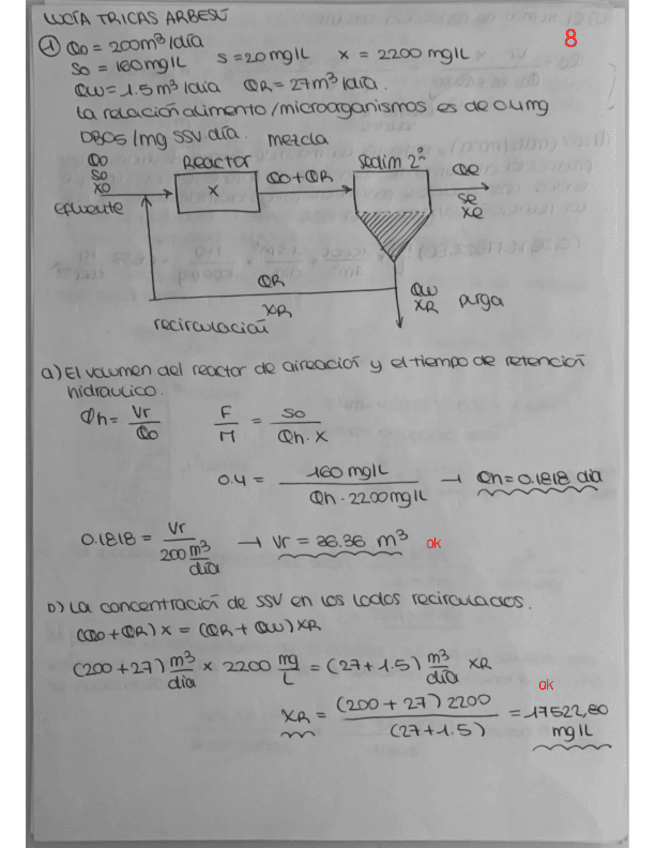 LUCÍA TRICAS ARBESÚ
8
1 Qo = 200m³/día
So = 160mg/L S = 20mg/L X = 2200 mg/L
QW = 1.5m³/día QR = 27m³/día.
La relación alimento/microorganismos es de 0.4mg
DBO5/mg SSV día. mezcla
Qo
So
Xo
efluente
Reactor
X
Qo+QR
Sedim 2º
Qe
Se
Xe
QR
XR
recirculación
QW
XR purga
a) El volumen del reactor de aireación y el tiempo de retención
hidraulico.
Θh = Vr / Qo F / M = So / Θh · X
0.4 = 160 mg/L / Θh · 2200mg/L → Θh = 0.1818 día
0.1818 = Vr / 200 m³/día → Vr = 36.36 m³ ok
b) La concentración de SSV en los lodos recirculados.
(Qo + QR) X = (QR + QW) XR
(200 + 27) m³/día × 2200 mg/L = (27 + 1.5) m³/día XR
ok
XR = (200 + 27) 2200 / (27 + 1.5) = 17522,80 mg/L